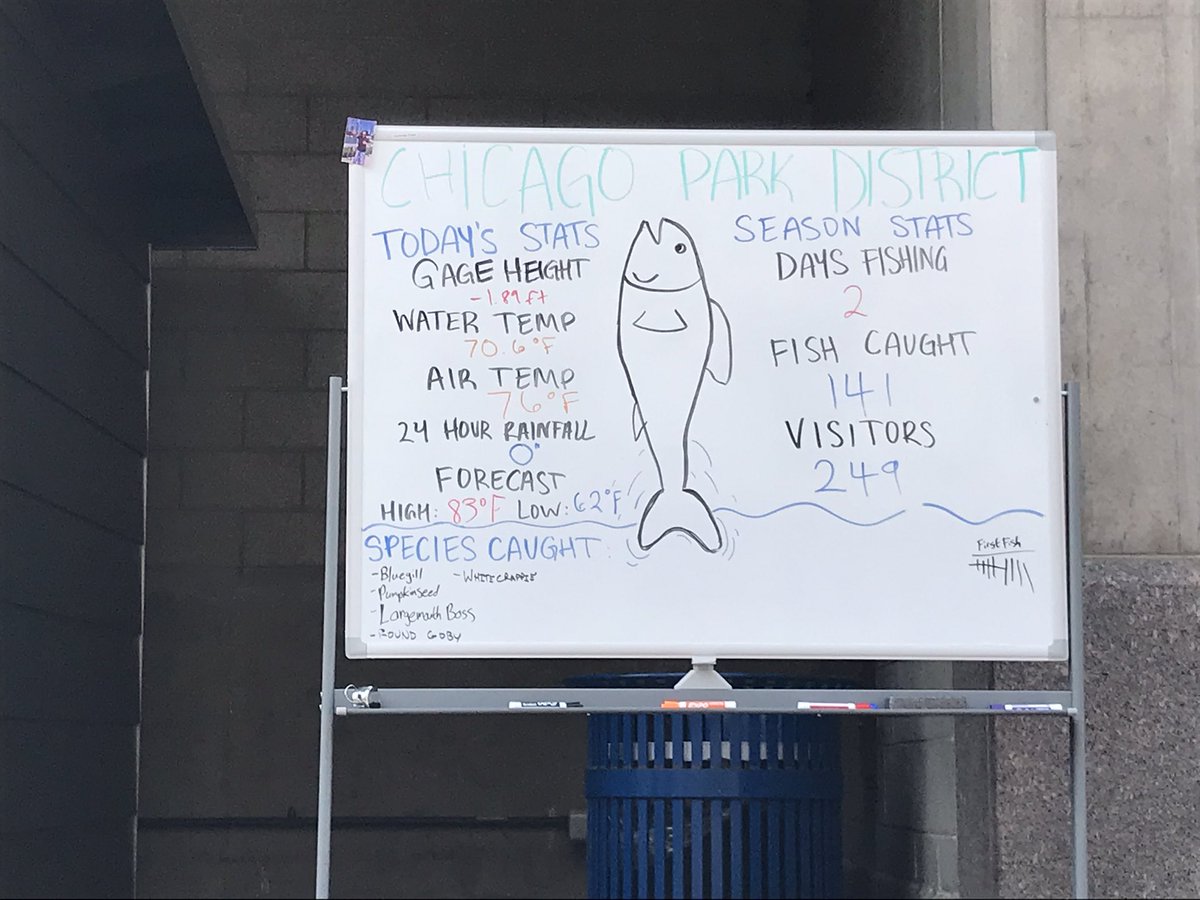 CHICAGO PARK DISTRICT
TODAY'S STATS
GAGE HEIGHT
-1.89 ft
WATER TEMP
70.6°F
AIR TEMP
76°F
24 HOUR RAINFALL
0"
FORECAST
HIGH: 83°F LOW: 62°F
SEASON STATS
DAYS FISHING
2
FISH CAUGHT
141
VISITORS
249
SPECIES CAUGHT:
- Bluegill - WHITE CRAPPIE
- Pumpkinseed
- Largemouth Bass
- ROUND GOBY
First Fish
EXPO